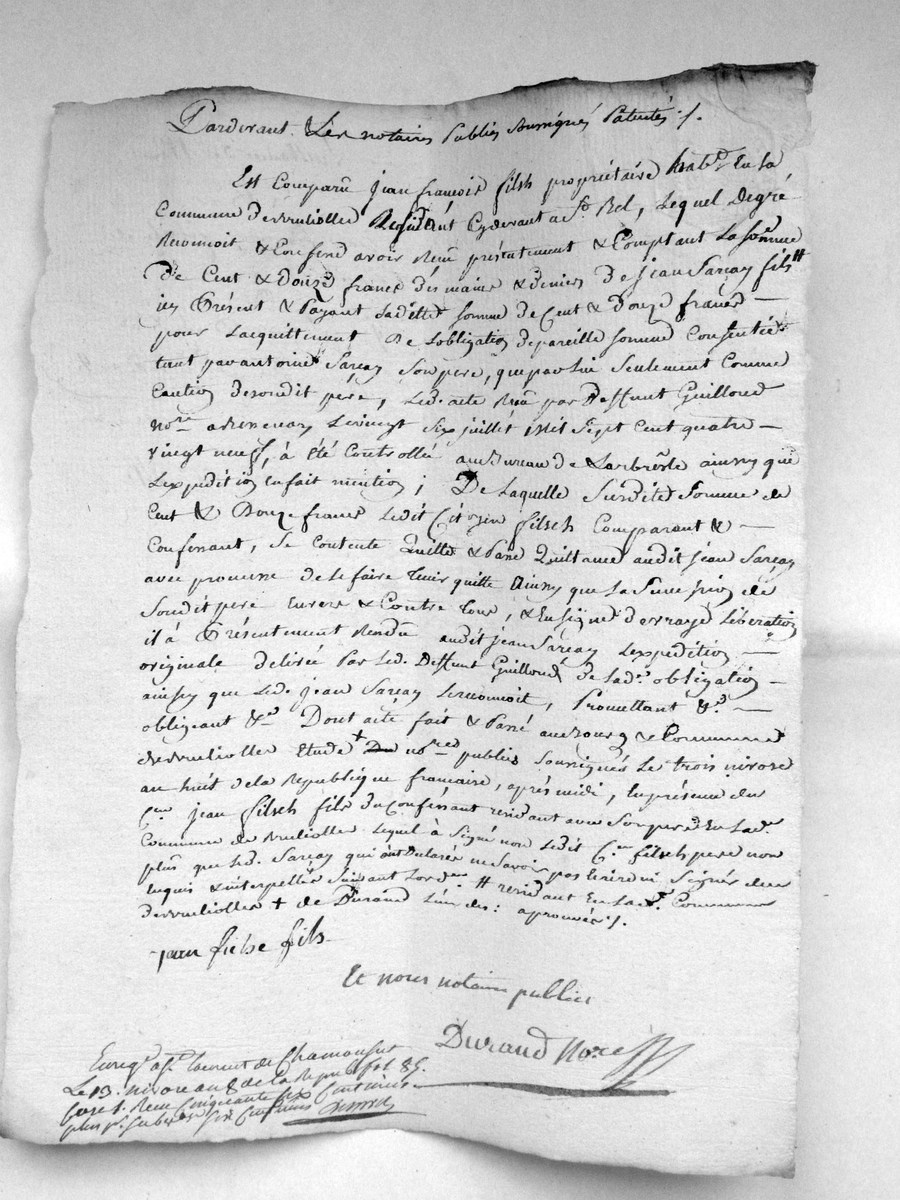 Pardevant Les notaires Publics Soussignés Patentés ./.
Est Comparu jean françois filsch propriétaire hab.t En La
Commune de Residant Cydevant a S.t Bel, Lequel Degré
Reconnoit & Confesse avoir Reçu présentement & Comptant La Somme
De Cent & Douze francs des mains & deniers De jean Sarcay fils #
icy Présent & Payant Ladite Somme de Cent & Douze francs —
pour Lacquittement De Lobligation depareille Somme Consentie
tant par antoine Sarçay Son pere, que par Lui Seulement Comme
Caution desondit pere, Led. acte Reçu par Deffunt Guilloud
No.re Levingt Six juillet Mil Sept Cent quatre —
vingt neuf, à été Controllé au Bureau de Larbresle ainsy que
Lexpedition En fait mention ; De Laquelle Susdite Somme de
Cent & Douze francs Ledit Citoyen filsch Comparant & —
Confessant, Se Contente Quitte & Passe Quittance audit jean Sarçay
avec promesse de Le faire Tenir quitte Ainsy que La Succession de
Sondit pere Envers & Contre Tous, & En Signe de vraye Libération
il à Présentement Rendu audit jean Sarçay Lexpédition —
originale délivrée Par Led. Deffunt Guilloud de Lad.e obligation —
ainsy que Led. jean Sarçay Lereconnoit, Promettant &.a —
obligeant &.a Dont acte fait & Passé au Bourg & Commune
Etude + De no.res publics Soussignés Le trois nivose
an huit dela Republique française, après midi, En présence du
C.en jean filsch fils du Confessant residant avec Son pere En Lad.e
Commune de Lequel à Signé non Ledit C.en filsch pere non
plus que Led. Sarçay qui ont Declarés ne Savoir pas Ecrire ni Signer de ce
Requis & interpellés Suivant Lordce # residant En Lad.e Commune
+ de Durand Lun des : aprouvés ./.
jean filse fils
Et nous notaires publics
Durand No.re
Enreg.é a S.t Laurent de Chamousset
Le 13. nivose an 8 de la Republ. fol. 85.
Case 1. Reçu Cinquante Six Centimes
plus p.r Subv.on Six Centimes